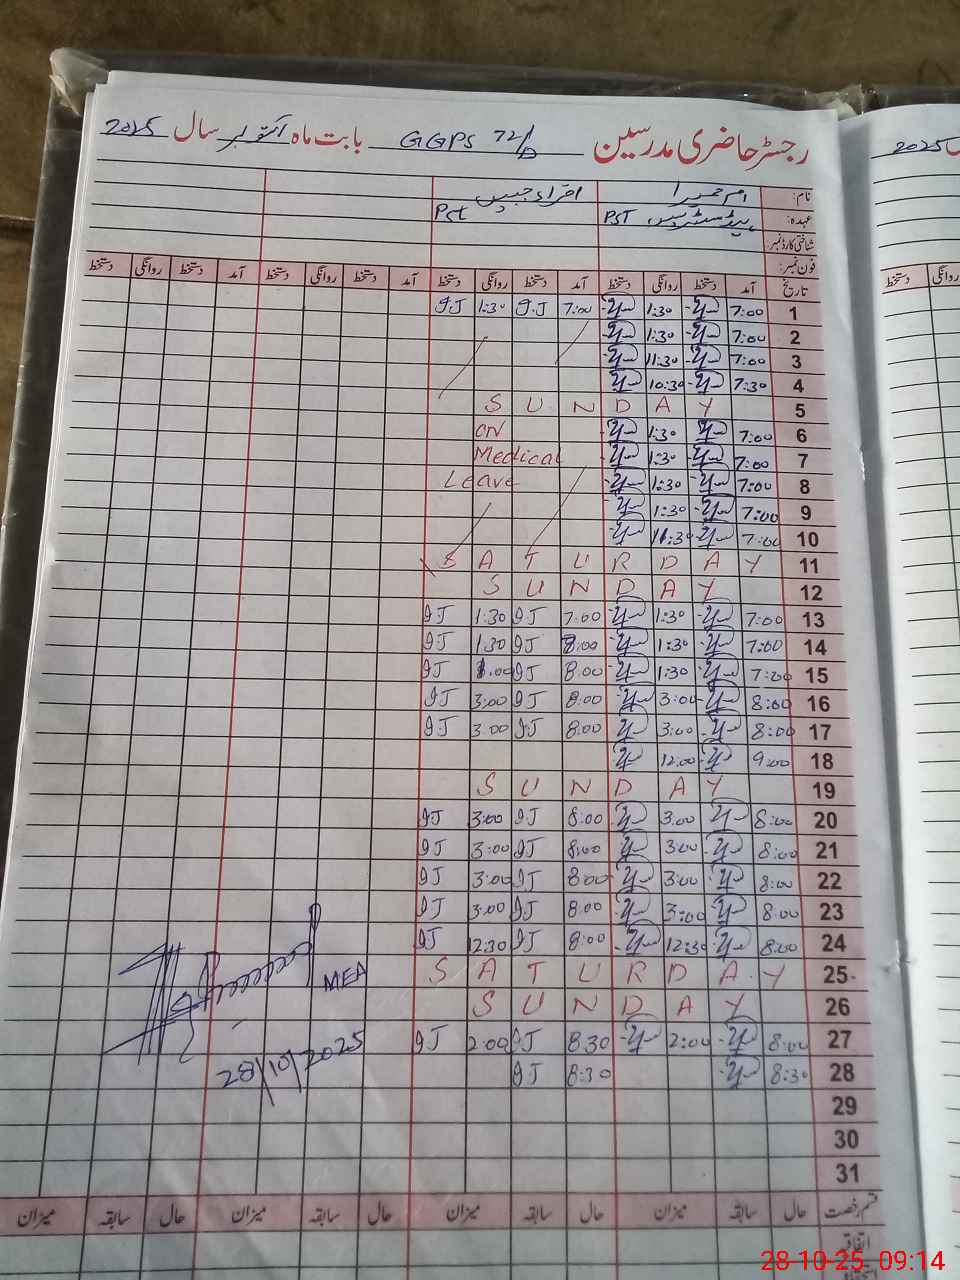 رجسٹر حاضری مدرسین GGPS 72/D بابت ماہ اکتوبر سال 2025
نام: ام حمیرا اقراء جبیں
عہدہ: PST Pst
شناختی کارڈ نمبر:
فون نمبر:
تاریخ آمد دستخط روانگی دستخط آمد دستخط روانگی دستخط آمد دستخط روانگی دستخط آمد دستخط روانگی دستخط
1 7:00 1:30 7:00 IJ 1:30 IJ
2 7:00 1:30
3 7:00 11:30
4 7:30 10:30
5 SUNDAY
6 7:00 1:30 ON
7 7:00 1:30 Medical
8 7:00 1:30 Leave
9 7:00 1:30
10 7:00 11:30
11 SATURDAY
12 SUNDAY
13 7:00 1:30 7:00 IJ 1:30 IJ
14 7:00 1:30 8:00 IJ 1:30 IJ
15 7:00 1:30 8:00 IJ IJ
16 8:00 3:00 8:00 IJ 3:00 IJ
17 8:00 3:00 8:00 IJ 3:00 IJ
18 9:00 12:00
19 SUNDAY
20 8:00 3:00 8:00 IJ 3:00 IJ
21 8:00 3:00 8:00 IJ 3:00 IJ
22 8:00 3:00 8:00 IJ 3:00 IJ
23 8:00 3:00 8:00 IJ 3:00 IJ
24 8:00 12:30 8:00 IJ 12:30 IJ
25 SATURDAY
26 SUNDAY
27 8:00 2:00 8:30 IJ 2:00 IJ
28 8:30 8:30 IJ
29
30
31
MEA
28/10/2025
قسم رخصت حال سابقہ میزان حال سابقہ میزان حال سابقہ میزان حال سابقہ میزان
اتفاقیہ
2025
روانگی دستخط
28-10-25 09:14